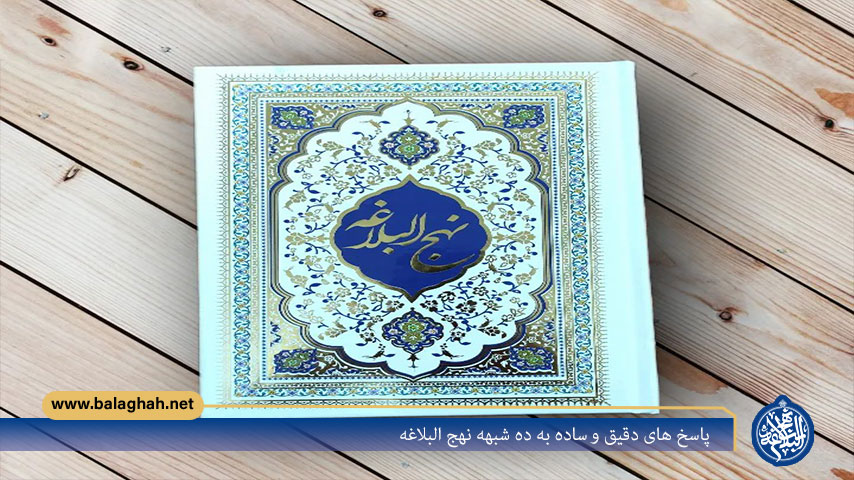 نهج البلاغه
www.balaghah.net
پاسخ های دقیق و ساده به ده شبهه نهج البلاغه
نهج البلاغه